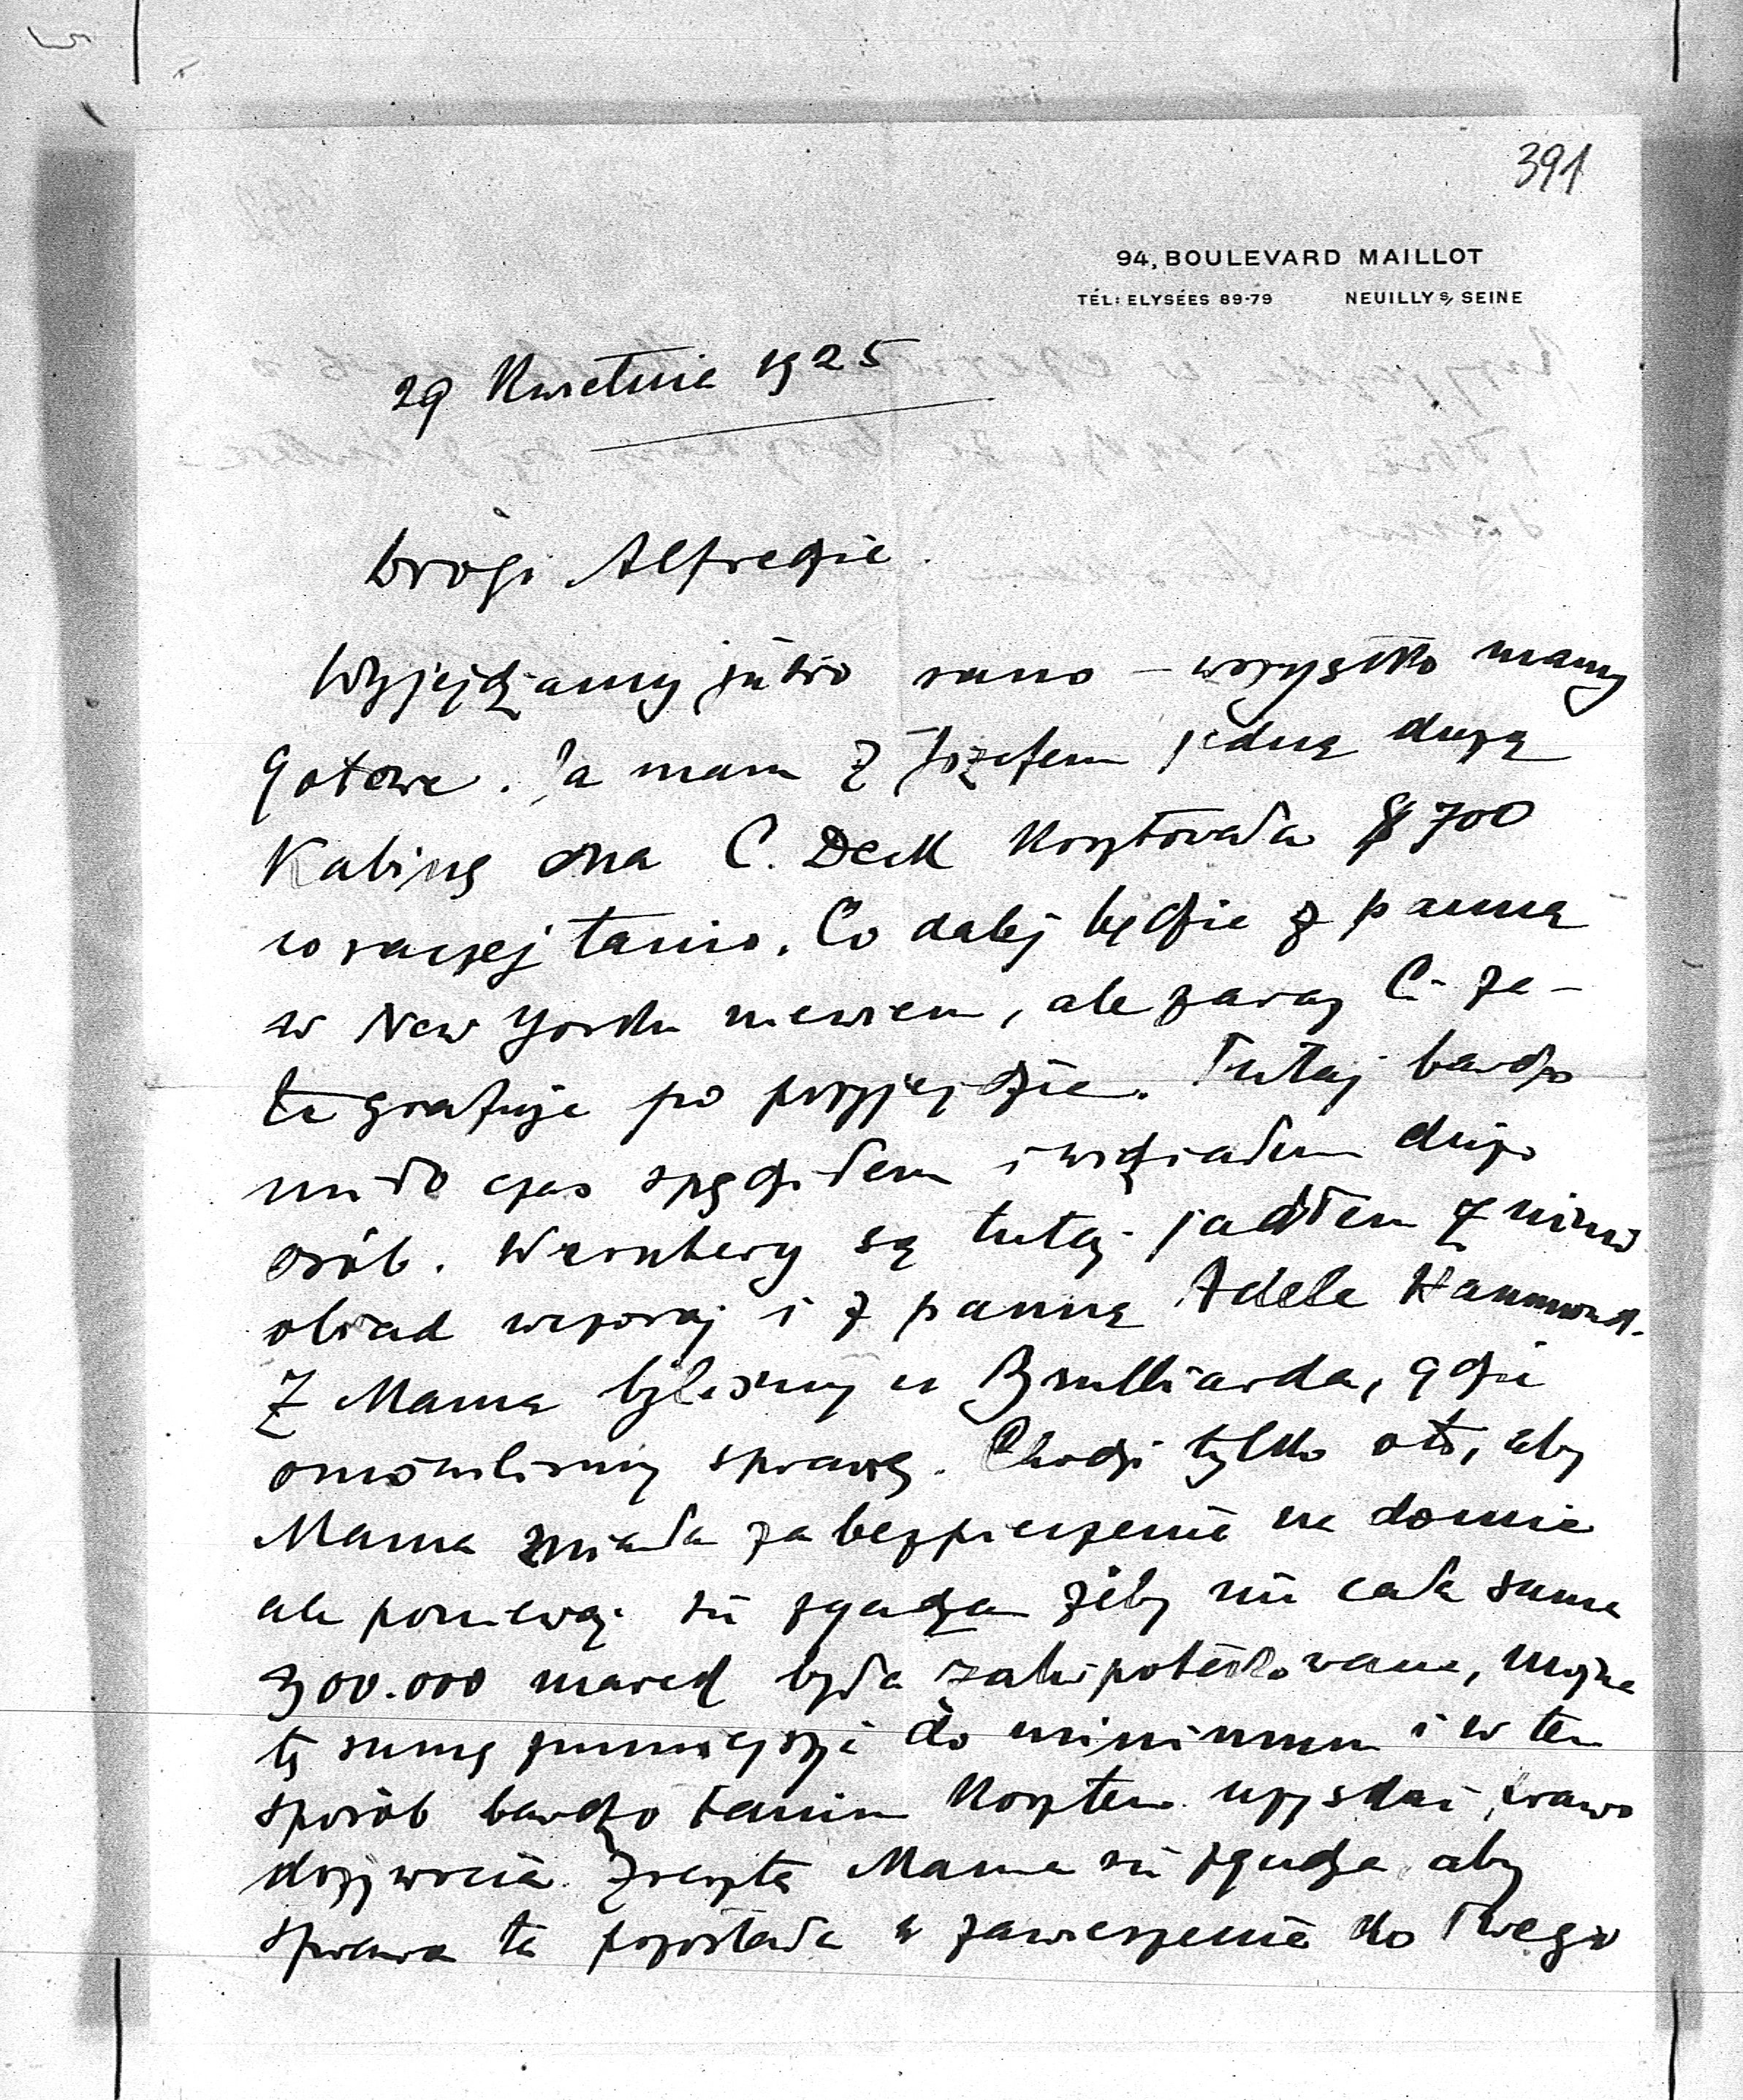 391
94, BOULEVARD MAILLOT
TÉL: ELYSÉES 89-79 NEUILLY s/ SEINE
29 Kwietnia 1925
Drogi Alfredzie.
Wyjeżdżamy jutro rano – wszystko mamy
gotowe. Ja mam z Józefem jedną dużą
Kabinę ona C. Deck Kosztowała $ 700
to raczej tanio. Co dalej będzie z panną
w New Yorku niewiem, ale zaraz Ci za-
telegrafuje po przyjeździe. Tutaj bardzo
miło czas spędziłem i widziałem dużo
osób. są tutaj jadłem z nimi
obiad wczoraj i z panną Adele Hammond.
Z Mamą byliśmy u Brulliarda, gdzie
omówiliśmy sprawę. Chodzi tylko oto, aby
Mama miała zabezpieczenie na domie
ale ponieważ się zgadza żeby nie cała suma
300.000 marek była zahipotekowana, można
tę sumę zmniejszyć do minimum i w ten
sposób bardzo tanim Kosztem uzyskać prawo
dożywocia. Zresztą Mama się zgadza aby
sprawa ta pozostała w zawieszeniu do Twego